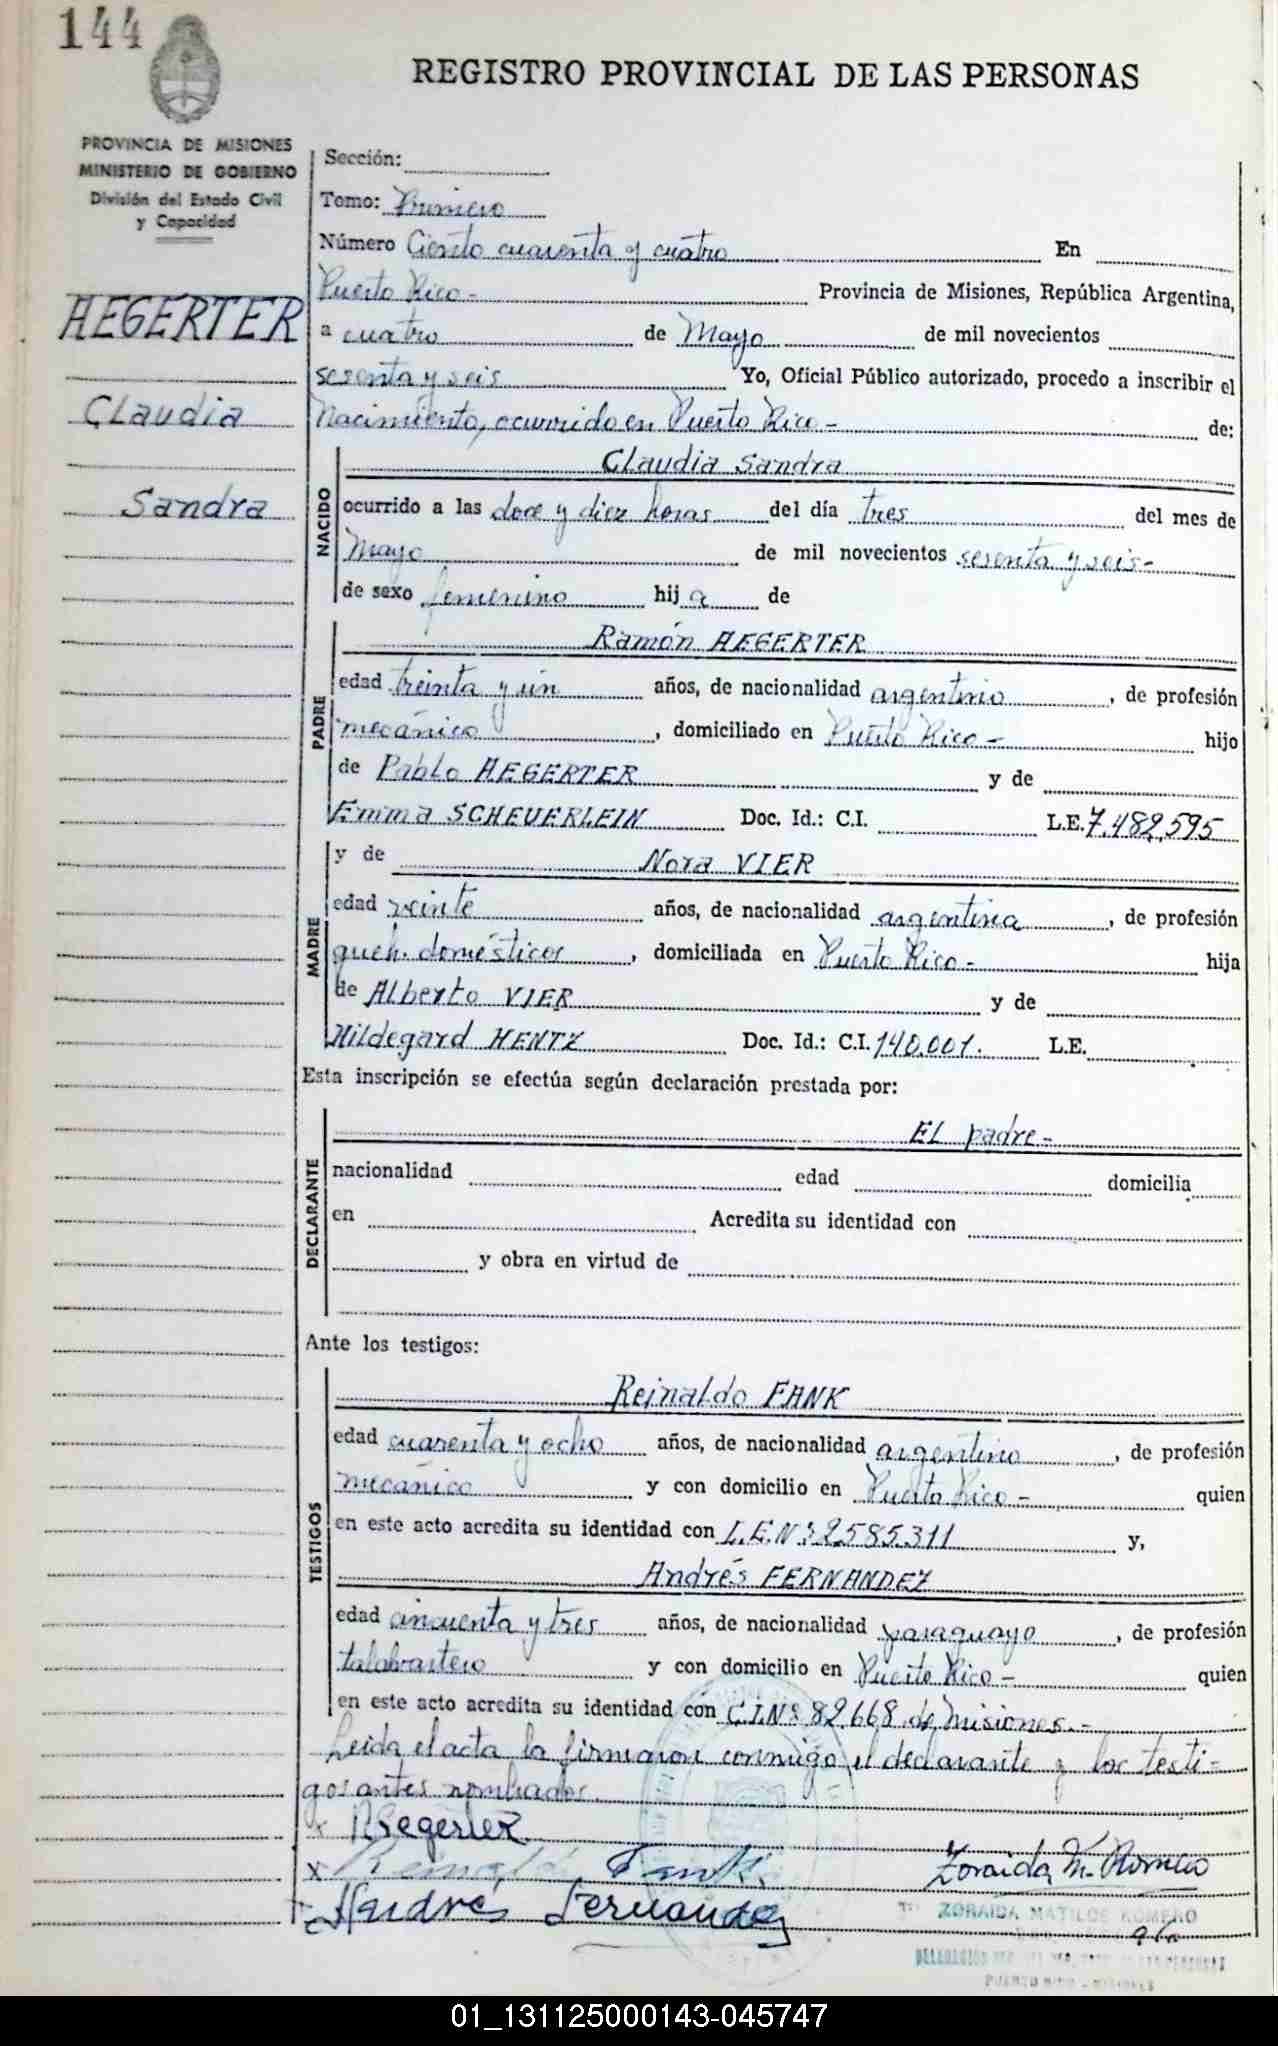 144
REGISTRO PROVINCIAL DE LAS PERSONAS
PROVINCIA DE MISIONES
MINISTERIO DE GOBIERNO
División del Estado Civil
y Capacidad
AEGERTER
Claudia
Sandra
Sección:
Tomo: Primero
Número Ciento cuarenta y cuatro En
Puerto Rico - Provincia de Misiones, República Argentina,
a cuatro de Mayo de mil novecientos
sesenta y seis Yo, Oficial Público autorizado, procedo a inscribir el
Nacimiento, ocurrido en Puerto Rico - de:
NACIDO
Claudia Sandra
ocurrido a las doce y diez horas del día tres del mes de
Mayo de mil novecientos sesenta y seis-
de sexo femenino hij a de
PADRE
Ramón AEGERTER
edad treinta y un años, de nacionalidad argentino, de profesión
mecánico, domiciliado en Puerto Rico - hijo
de Pablo AEGERTER y de
Emma SCHEUERLEIN Doc. Id.: C.I. L.E. 7.482,595
MADRE
y de Nora VIER
edad veinte años, de nacionalidad argentina, de profesión
queh. domésticos, domiciliada en Puerto Rico - hija
de Alberto VIER y de
Hildegard HENTZ Doc. Id.: C.I. 140.001. L.E.
Esta inscripción se efectúa según declaración prestada por:
DECLARANTE
El padre -
nacionalidad edad domicilia
en Acredita su identidad con
y obra en virtud de
Ante los testigos:
TESTIGOS
Reinaldo FANK
edad cuarenta y ocho años, de nacionalidad argentino, de profesión
mecánico y con domicilio en Puerto Rico - quien
en este acto acredita su identidad con L.E.Nº 2585.311 y,
Andrés FERNANDEZ
edad cincuenta y tres años, de nacionalidad paraguayo, de profesión
talabartero y con domicilio en Puerto Rico - quien
en este acto acredita su identidad con C.I.Nº 82.668 de Misiones. -
Leida el acta la firmaron conmigo el declarante y los testi-
gos antes nombrados.
x RAegerter
x Reinaldo Fank
Andrés Fernandez
Zoraida M. Romero
ZORAIDA MATILDE ROMERO
PUERTO RICO - MISIONES
01_131125000143-045747